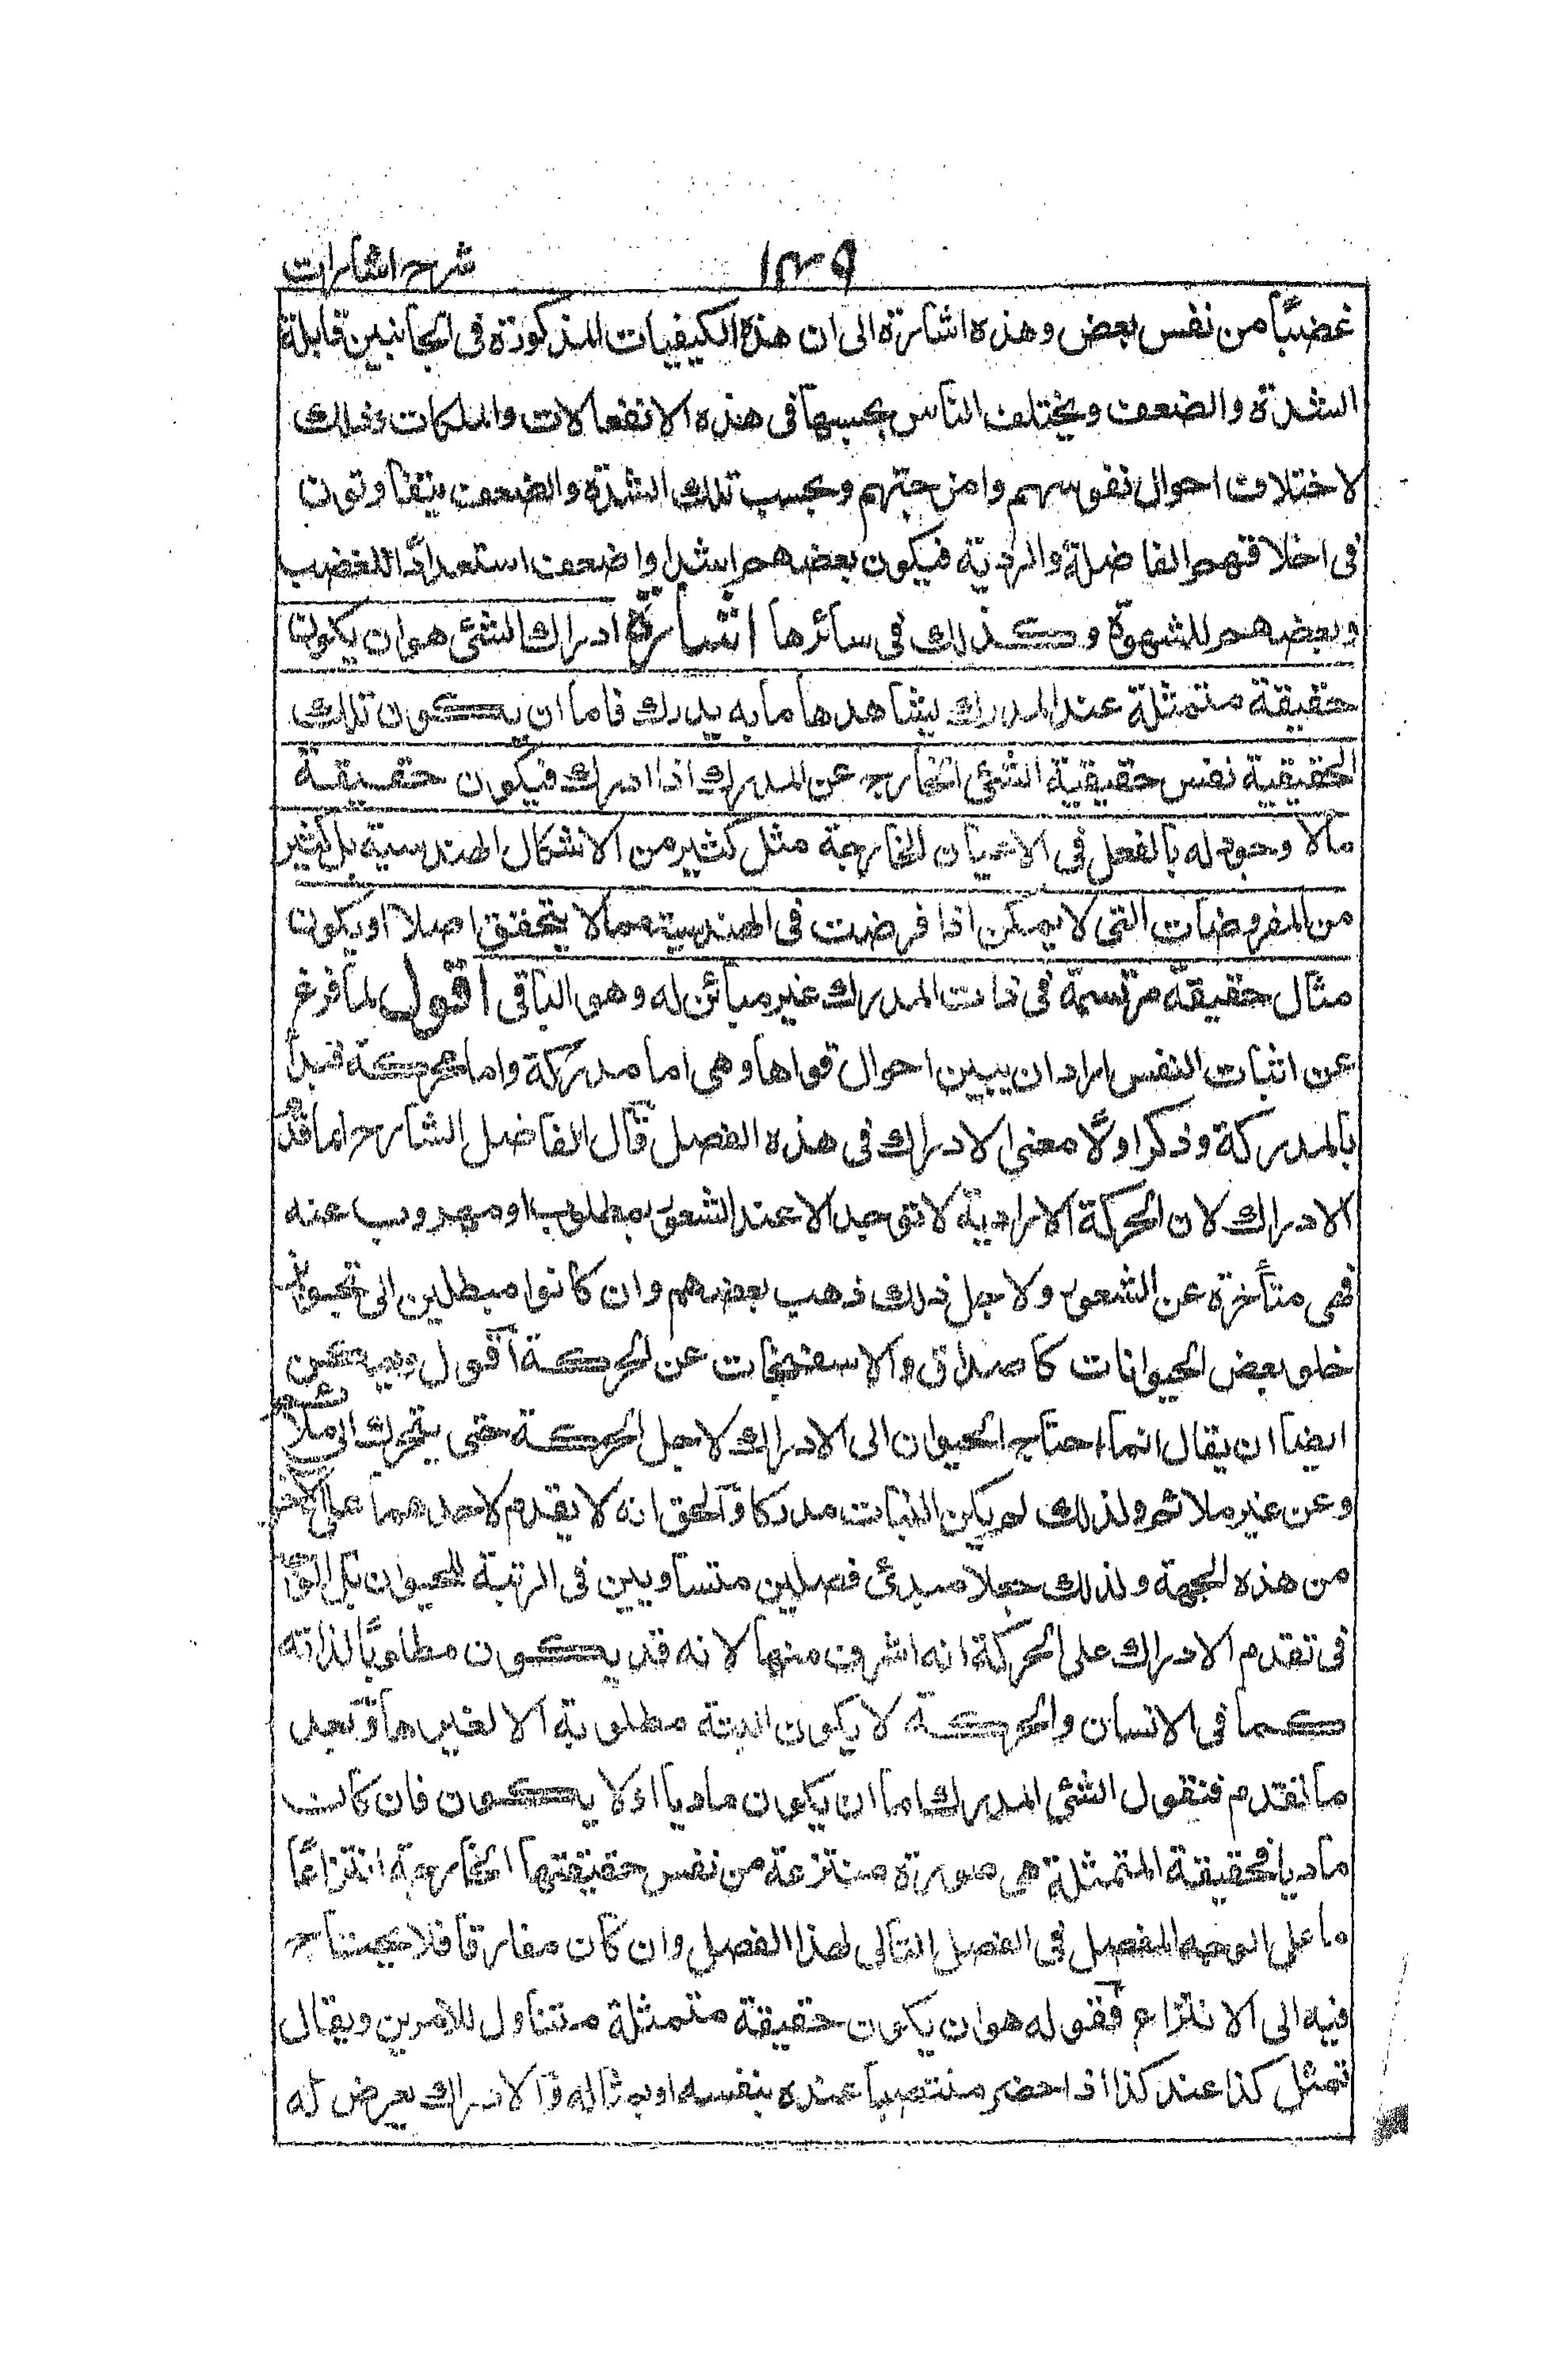 ١٣٩ شرح اشارات
غضبًا من نفس بعض وهذه اشارة الى ان هذه الكيفيات المذكورة فى الجانبين قابلة
الشدة والضعف ويختلف الناس بحسبها فى هذه الانفعالات والملكات وذلك
لاختلاف احوال نفوسهم وامزجتهم وبحسب تلك الشدة والضعف يتفاوتون
فى اخلاقهم الفاضلة والردية فيكون بعضهم اشد او اضعف استعدادًا للغضب
وبعضهم للشهوة وكذلك فى سائرها اشارة ادراك الشئ هو ان يكون
حقيقة متمثلة عند المدرك يشاهدها ما به يدرك فاما ان يكون تلك
الحقيقية نفس حقيقية الشئ الخارج عن المدرك اذا ادرك فيكون حقيقة
مالا وجود له بالفعل فى الاعيان الخارجة مثل كثير من الاشكال الهندسية بل كثير
من المفروضات التى لا يمكن اذا فرضت فى الهندسية مما لا يتحقق اصلا او يكون
مثال حقيقة مرتسمة فى ذات المدرك غير مبائن له وهو الباقى اقول لما فرغ
عن اثبات النفس اراد ان يبين احوال قواها وهى اما مدركة واما محركة فبدأ
بالمدركة وذكر اولًا معنى الادراك فى هذه الفصل قال الفاضل الشارح انما قدم
الادراك لان الحركة الارادية لا توجد الا عند الشعور بمطلوب او مهروب عنه
فهى متأخرة عن الشعور ولاجل ذلك ذهب بعضهم وان كانوا مبطلين الى تجويز
خلو بعض الحيوانات كاصداق والاسفنجات عن الحركة اقول ويمكن
ايضا ان يقال انما احتاج الحيوان الى الادراك لاجل الحركة حتى يتحرك الى ملائم
وعن غير ملائم ولذلك لم يكن النبات مدركا والحق انه لا يقدم لاحدهما على الآخر
من هذه الجهة ولذلك جعلا مبدئ فصلين متساويين فى الرتبة للحيوان بل الحق
فى تقدم الادراك على الحركة انه اشرف منها لانه قد يكون مطلوبًا لذاته
كما فى الانسان والحركة لا يكون البتة مطلوبة الا لغيرها وبعد
ما تقدم فنقول الشئ المدرك اما ان يكون ماديا او لا يكون فان كانت
ماديا فحقيقة المتمثلة هى صورة منتزعة من نفس حقيقتها الخارجة انتزاعًا
ما على الوجه المفصل فى الفصل التالى لهذا الفصل وان كان مفارقا فلا يحتاج
فيه الى الانتزاع فقوله هو ان يكون حقيقة متمثلة متناول للامرين ويقال
تمثل كذا عند كذا اذا حضر منتصبا عنده بنفسه او بمثاله والادراك يعرض له